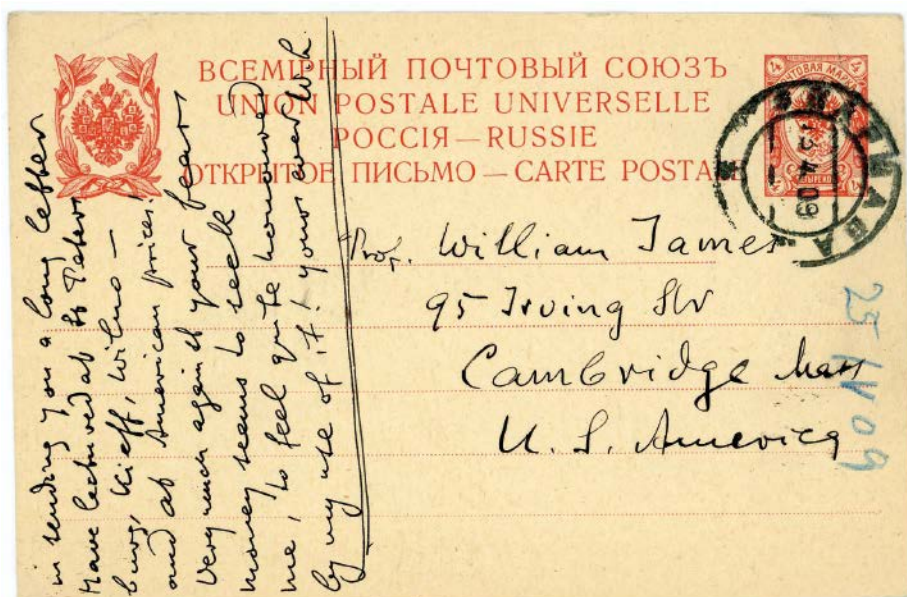 ВСЕМІРНЫЙ ПОЧТОВЫЙ СОЮЗЪ
UNION POSTALE UNIVERSELLE
РОССІЯ — RUSSIE
ОТКРЫТОЕ ПИСЬМО — CARTE POSTALE
4 4
ПОЧТОВАЯ МАРКА
13.4.09
Prof. William James
95 Irving Str
Cambridge Mass
U. S. America
25 IV 09
in sending you a long letter
Have lectured at St Peters
burg, Kieff, Wilno —
and at American prices!
Very much against your fears
money seems to seek
me, to feel quite honoured
by my use of it! Yours ever